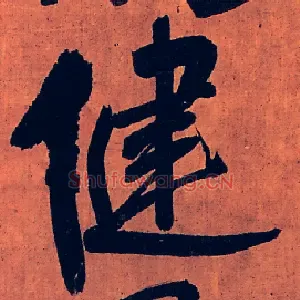 健
Shufawang.CN